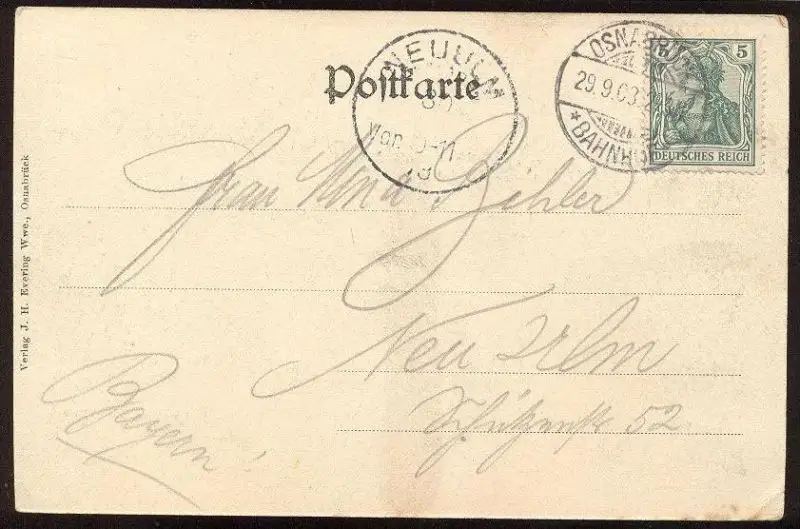 Postkarte
NEU ULM
OSNABRÜCK
29.9.03
* BAHNH
5
DEUTSCHES REICH
Frau Bihler
Neu Ulm
Schützenstr 52
Bayern!
Verlag J. H. Evering Wwe., Osnabrück